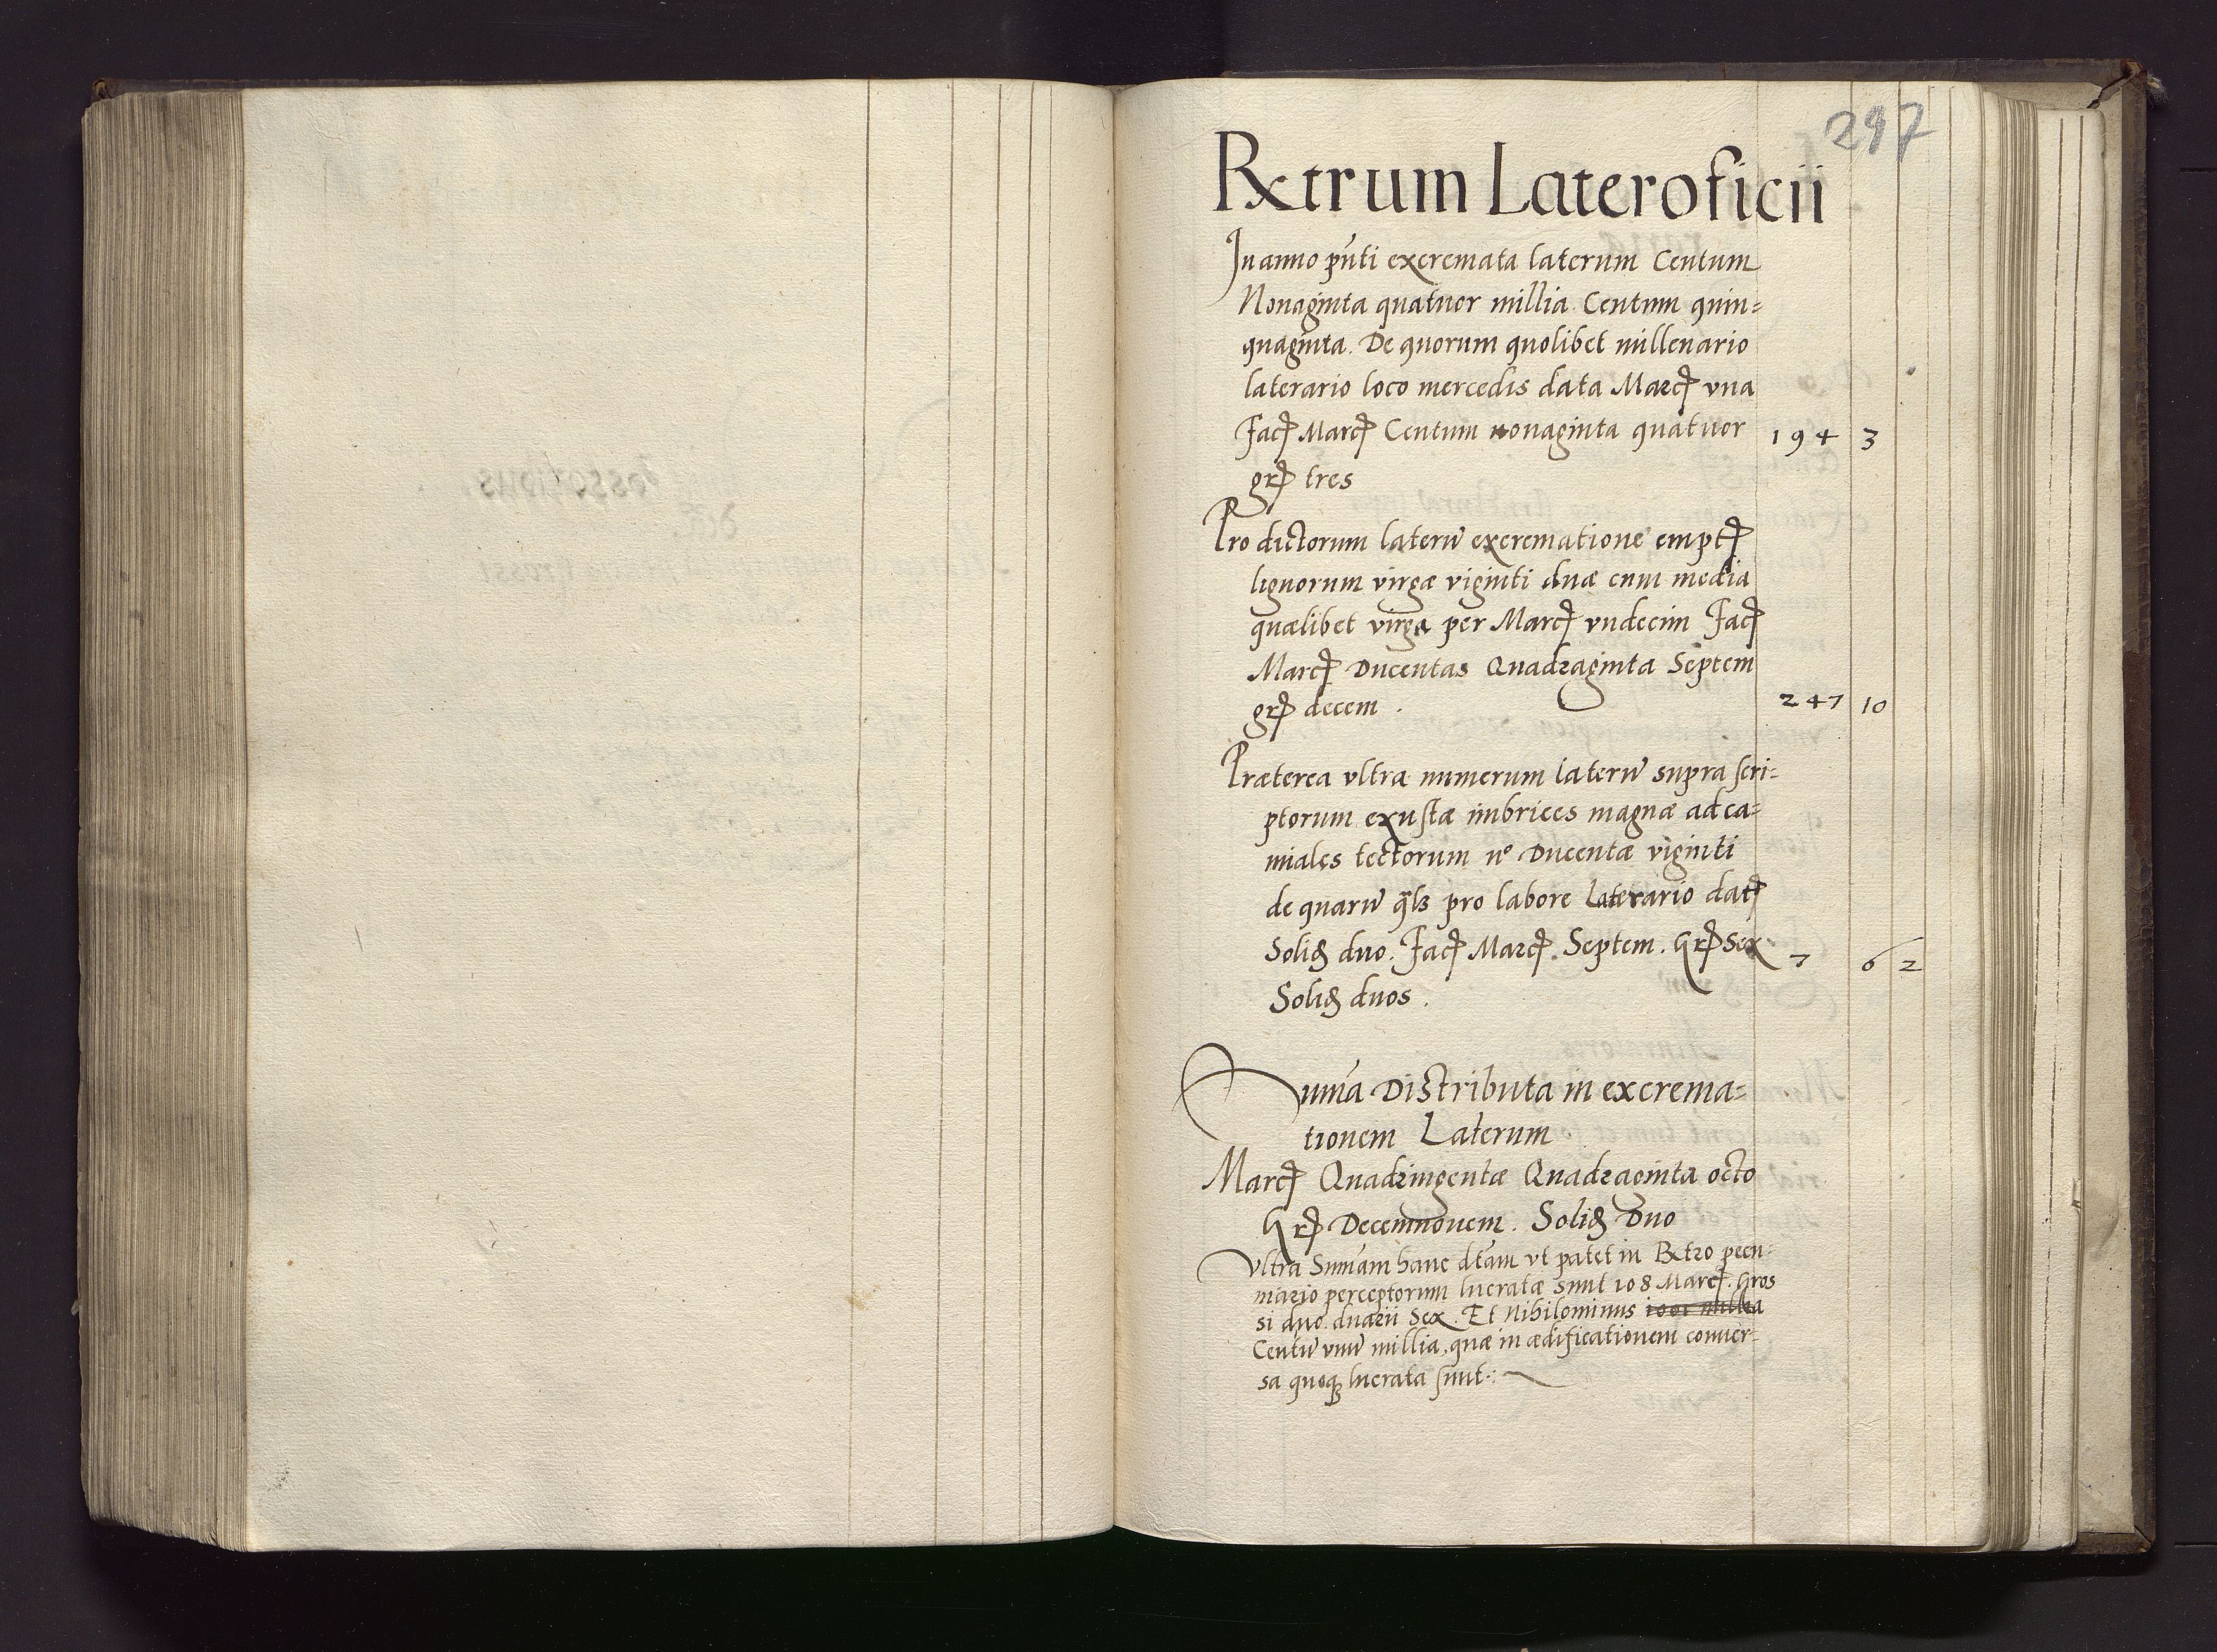 297
Rxtrum Lateroficii
In anno pn̄ti excremata laterum Centum
Nonaginta quatuor millia Centum quin=
quaginta. De quorum quolibet millenario
laterario loco mercedis data Marcꝭ vna
Facꝭ Marcꝭ Centum nonaginta quatuor 194 3
grꝭ tres
Pro dictorum laterū excrematione emptꝭ
lignorum virgæ viginti duæ cum media
quælibet virga per Marcꝭ vndecim Facꝭ
Marcꝭ Ducentas Quadraginta Septem
grꝭ decem . 247 10
Præterea vltra numerum laterū supra scri=
ptorum exustæ imbrices magnæ ad ca=
miales tectorum nº Ducentæ viginti
de quarū qlꝫ pro labore laterario datꝭ
Solið duo. Facꝭ Marcꝭ. Septem. Grꝭ Sex 7 6 2
Solið duos .
Sum̄a Distributa in excrema=
tionem Laterum
Marcꝭ Quadringentæ Quadraginta octo
Grꝭ Decemnouem. Solið Duo
Vltra Sum̄am hanc dc̄tam vt patet in Rxtro pecu=
niario perceptorum lucratæ sunt 108 Marcꝭ. Gros
si duo. duarii Sex. Et Nihilominus
Centū vnū millia, quæ in ædificationem conuer-
sa quoqꝫ lucrata sunt.